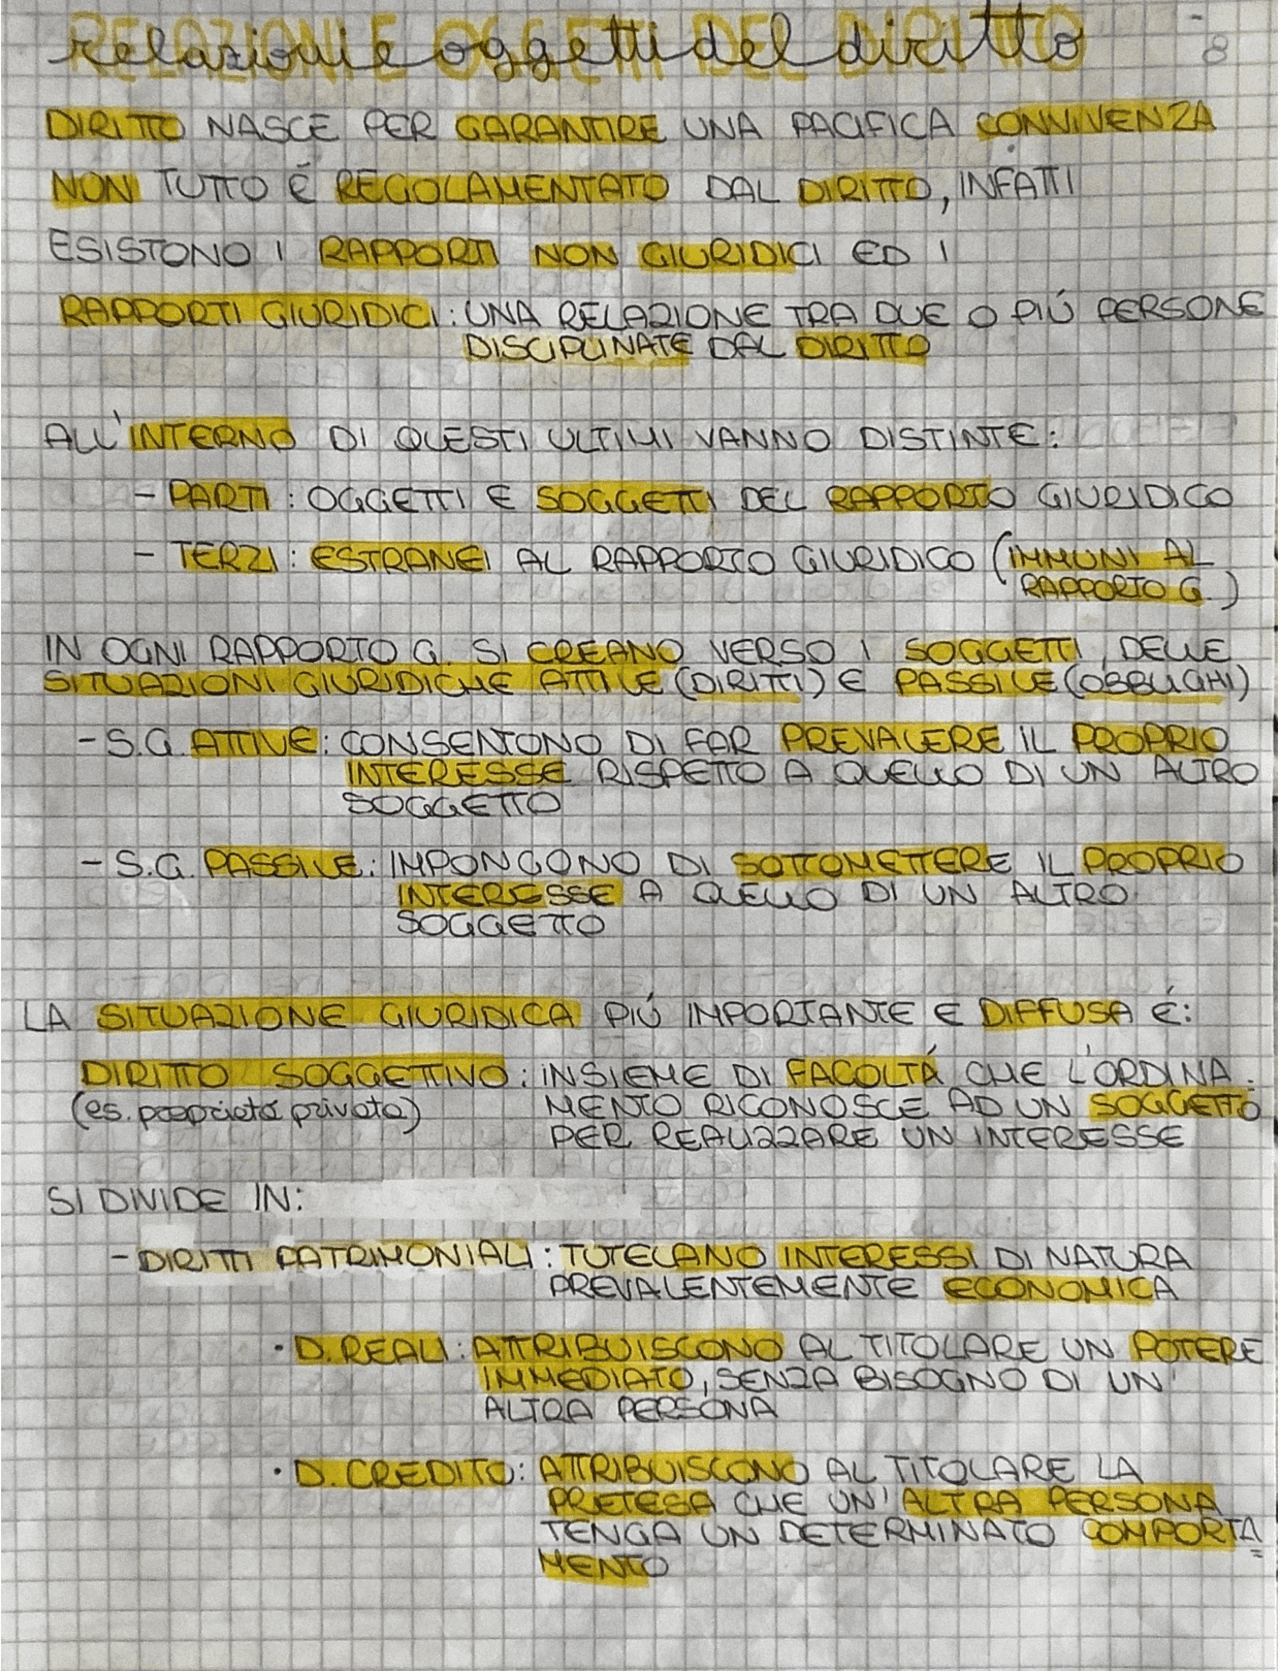 relazioni e oggetti del diritto
8
DIRITTO NASCE PER GARANTIRE UNA PACIFICA CONVIVENZA
NON TUTTO É REGOLAMENTATO DAL DIRITTO, INFATTI
ESISTONO I RAPPORTI NON GIURIDICI ED I
RAPPORTI GIURIDICI: UNA RELAZIONE TRA DUE O PIÚ PERSONE
DISCIPLINATE DAL DIRITTO
ALL'INTERNO DI QUESTI ULTIMI VANNO DISTINTE:
- PARTI: OGGETTI E SOGGETTI DEL RAPPORTO GIURIDICO
- TERZI: ESTRANEI AL RAPPORTO GIURIDICO (IMMUNI AL
RAPPORTO G.)
IN OGNI RAPPORTO G. SI CREANO VERSO I SOGGETTI DELLE
SITUAZIONI GIURIDICHE ATTIVE (DIRITTI) E PASSIVE (OBBLIGHI)
- S.G. ATTIVE: CONSENTONO DI FAR PREVALERE IL PROPRIO
INTERESSE RISPETTO A QUELLO DI UN ALTRO
SOGGETTO
- S.G. PASSIVE: IMPONGONO DI SOTTOMETTERE IL PROPRIO
INTERESSE A QUELLO DI UN ALTRO
SOGGETTO
LA SITUAZIONE GIURIDICA PIÚ IMPORTANTE E DIFFUSA É:
DIRITTO SOGGETTIVO: INSIEME DI FACOLTÁ CHE L'ORDINA-
(es. proprietá privata) MENTO RICONOSCE AD UN SOGGETTO
PER REALIZZARE UN INTERESSE
SI DIVIDE IN:
- DIRITTI PATRIMONIALI: TUTELANO INTERESSI DI NATURA
PREVALENTEMENTE ECONOMICA
· D. REALI: ATTRIBUISCONO AL TITOLARE UN POTERE
IMMEDIATO, SENZA BISOGNO DI UN'
ALTRA PERSONA
· D. CREDITO: ATTRIBUISCONO AL TITOLARE LA
PRETESA CHE UN'ALTRA PERSONA
TENGA UN DETERMINATO COMPORTA=
MENTO